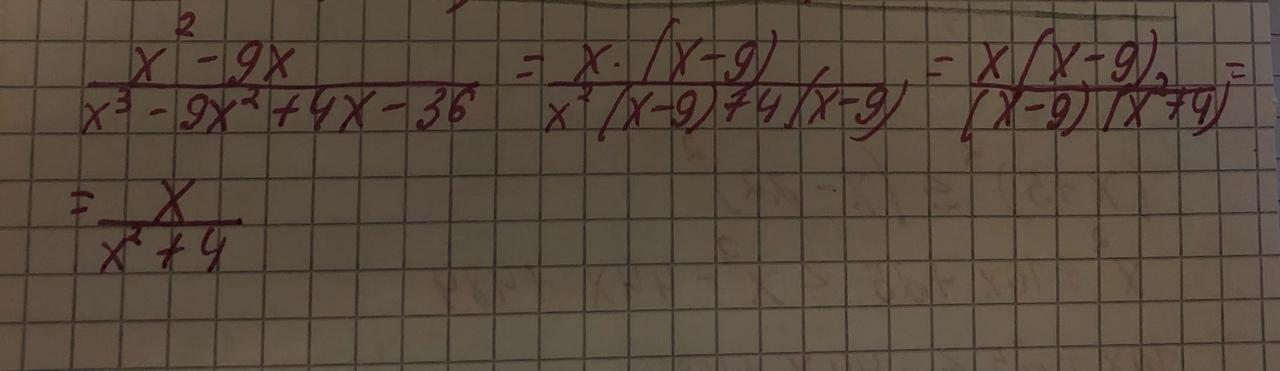 (x² - 9x)/(x³ - 9x² + 4x - 36) = (x · (x-9))/(x² (x-9) + 4 (x-9)) = (x (x-9))/((x-9) (x² + 4)) =
= x/(x² + 4)